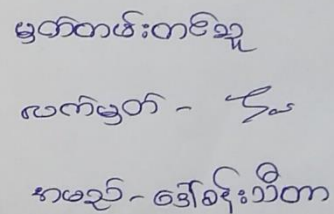 မှတ်တမ်းတင်သူ
လက်မှတ် -
အမည် - ဒေါ်ခင်သီတာ